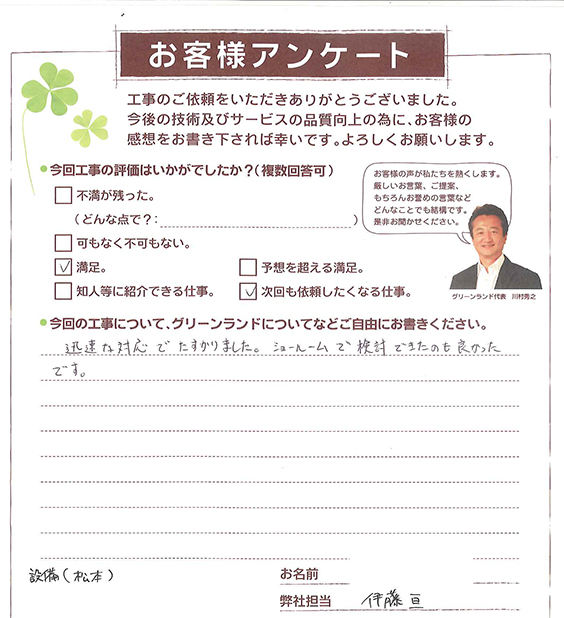 お客様アンケート
工事のご依頼をいただきありがとうございました。
今後の技術及びサービスの品質向上の為に、お客様の
感想をお書き下されば幸いです。よろしくお願いします。
●今回工事の評価はいかがでしたか?(複数回答可)
お客様の声が私たちを熱くします。
厳しいお言葉、ご提案、
もちろんお誉めの言葉など
どんなことでも結構です。
是非お聞かせください。
不満が残った。
(どんな点で?: )
可もなく不可もない。
満足。
予想を超える満足。
知人等に紹介できる仕事。
次回も依頼したくなる仕事。
グリーンランド代表 川村秀之
●今回の工事について、グリーンランドについてなどご自由にお書きください。
迅速な対応でたすかりました。ショールームで検討できたのも良かった
です。
設備(松本)
お名前
弊社担当 伊藤亘